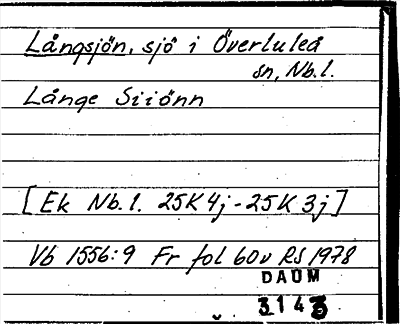 Långsjön, sjö i Överluleå
sn, Nb.l.
Långe Siiönn
[Ek Nb.l. 25K 4j - 25K 3j]
Vb 1556:9 Fr fol 60v RS 1978
DAUM
3143